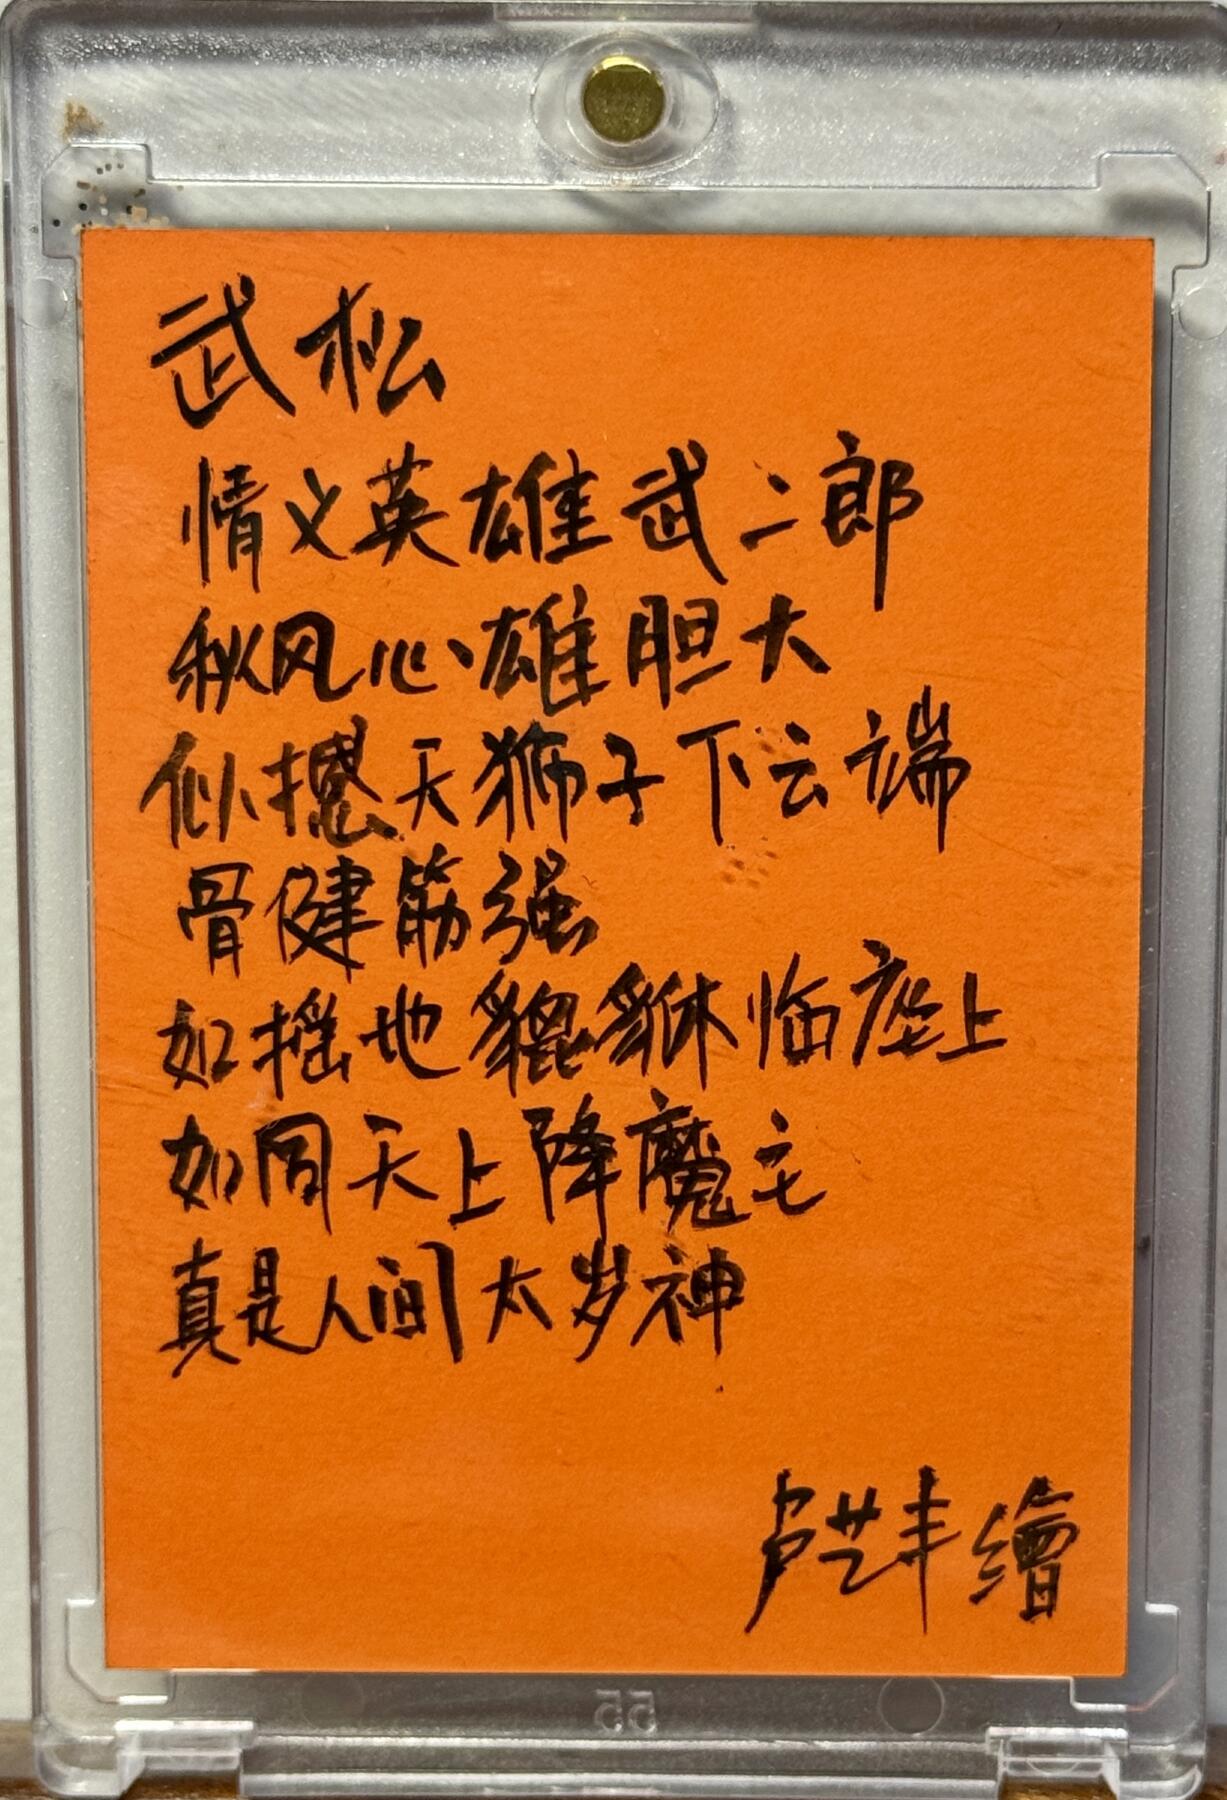 武松
情义英雄武二郎
秋风心雄胆大
似撼天狮子下云端
骨健筋强
如摇地貔貅临座上
如同天上降魔主
真是人间太岁神
卢艺丰繪
55